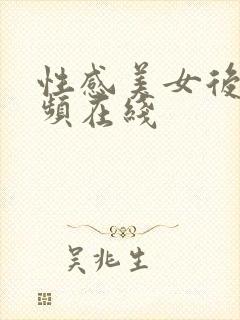 性感美女後
頻在綫
吴兆生